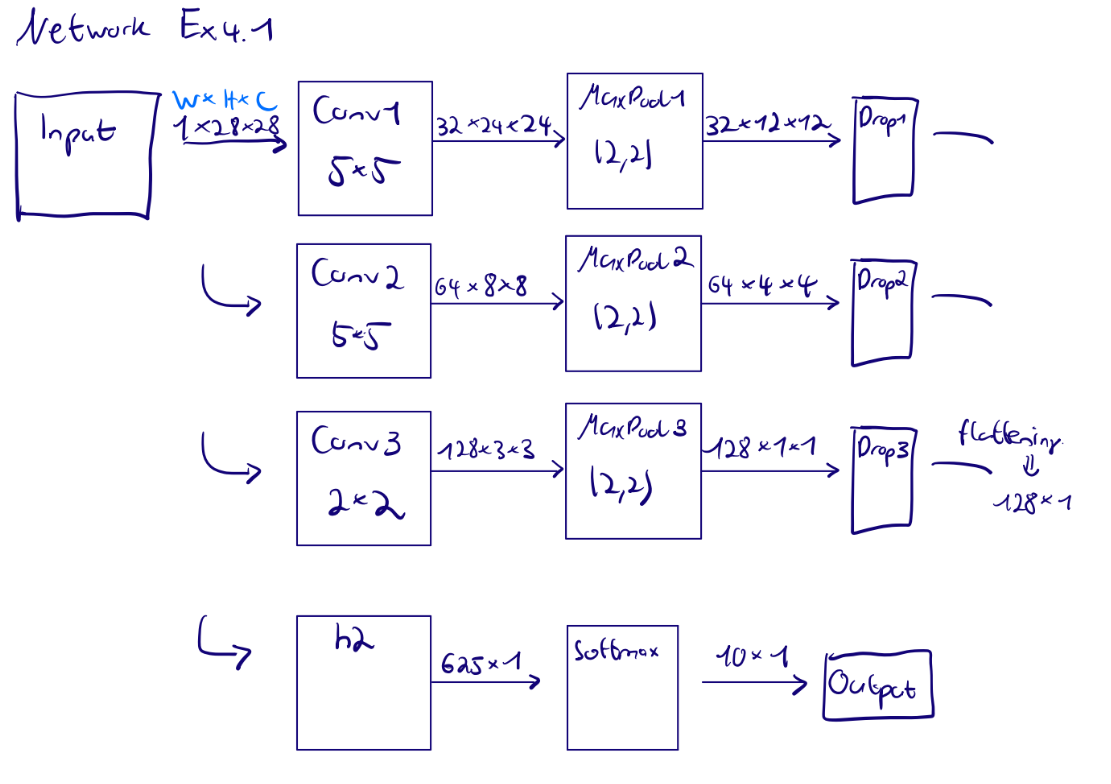 Network Ex4.1
Input
W×H×C
1×28×28
Conv1
5×5
32×24×24
MaxPool1
(2,2)
32×12×12
Drop1
Conv2
5×5
64×8×8
MaxPool2
(2,2)
64×4×4
Drop2
Conv3
2×2
128×3×3
MaxPool3
(2,2)
128×1×1
Drop3
flattening
⇓
128×1
h2
625×1
Softmax
10×1
Output